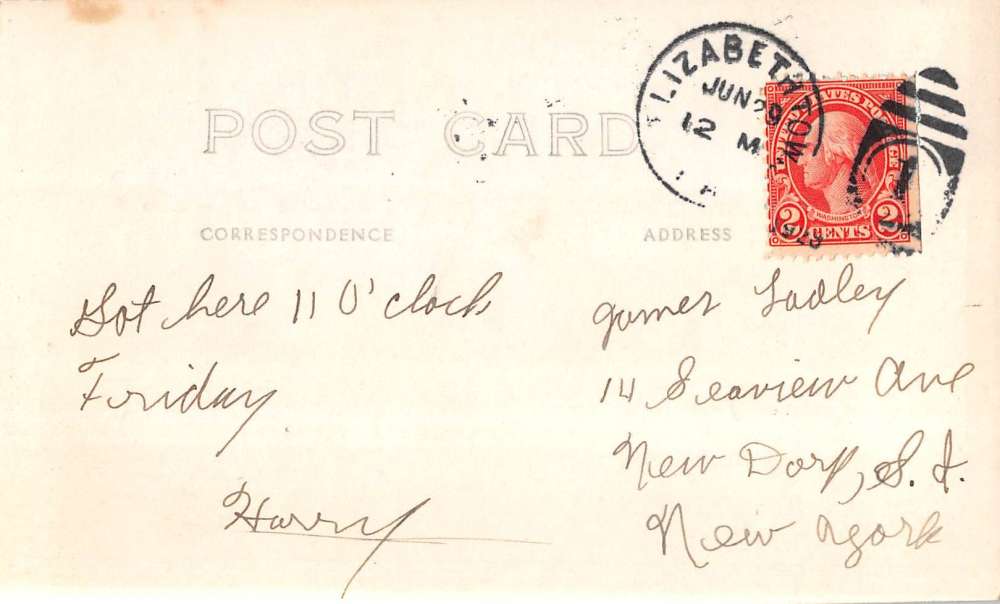 POST CARD
CORRESPONDENCE
ADDRESS
ELIZABETHTOWN
JUN 29
12 M
1929
UNITED STATES POSTAGE
WASHINGTON
2 CENTS 2
1
Got here 11 O'clock
Friday
Harry
James
14 Seaview Ave
New Dorp, S. I.
New York